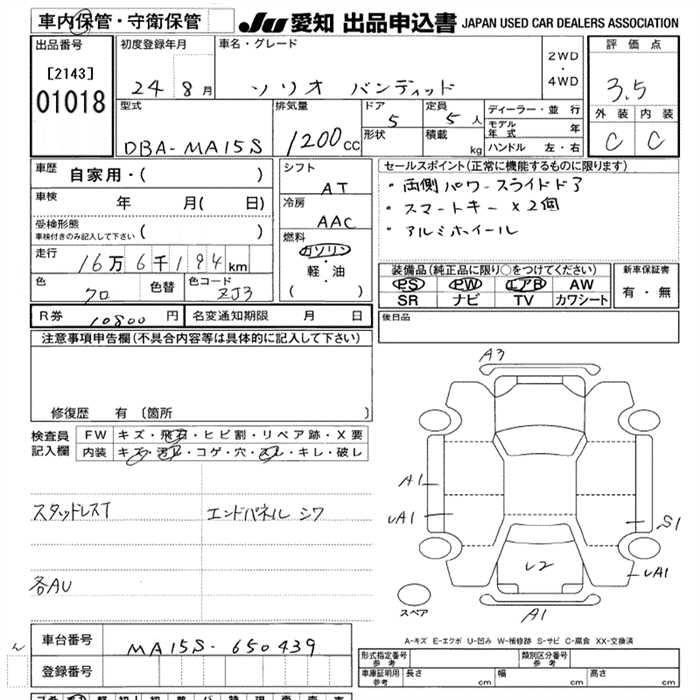 車内保管・守衛保管
JU 愛知 出品申込書 JAPAN USED CAR DEALERS ASSOCIATION
出品番号
[2143]
01018
初度登録年月
24年8月
車名・グレード
ソリオ バンディット
2WD
・
4WD
評価点
3.5
外装 内装
C C
型式
DBA-MA15S
排気量
1200cc
ドア
5
形状
定員
5人
積載
kg
ディーラー・並行
モデル年式 年
ハンドル 左・右
車歴
自家用・( )
車検
年 月( 日)
受検形態
車検付きのみ記入して下さい ( )
走行
16万6千194km
色
クロ
色替
色コード
ZJ3
シフト
AT
冷房
AAC
燃料
ガソリン
・
軽・油
( )
セールスポイント(正常に機能するものに限ります)
・両側パワースライドドア
・スマートキー×2個
・アルミホイール
装備品(純正品に限り○をつけてください)
PS PW エアB AW
SR ナビ TV カワシート
新車保証書
有・無
R券 10800円
名変通知期限 月 日
後日品
注意事項申告欄(不具合内容等は具体的に記入して下さい)
修復歴 有〔箇所 〕
検査員記入欄
FW キズ・飛石・ヒビ割・リペア跡・X要
内装 キズ・汚レ・コゲ・穴・スレ・キレ・破レ
スタッドレスT
エンドパネル シワ
各AU
A3
A1
UA1
S1
U2
UA1
A1
スペア
A-キズ E-エクボ U-凹み W-補修跡 S-サビ C-腐食 XX-交換済
車台番号
MA15S-650439
登録番号
型式指定番号
参考
類別区分番号
参考
車庫証明用
参考
長さ cm
幅 cm
高さ cm